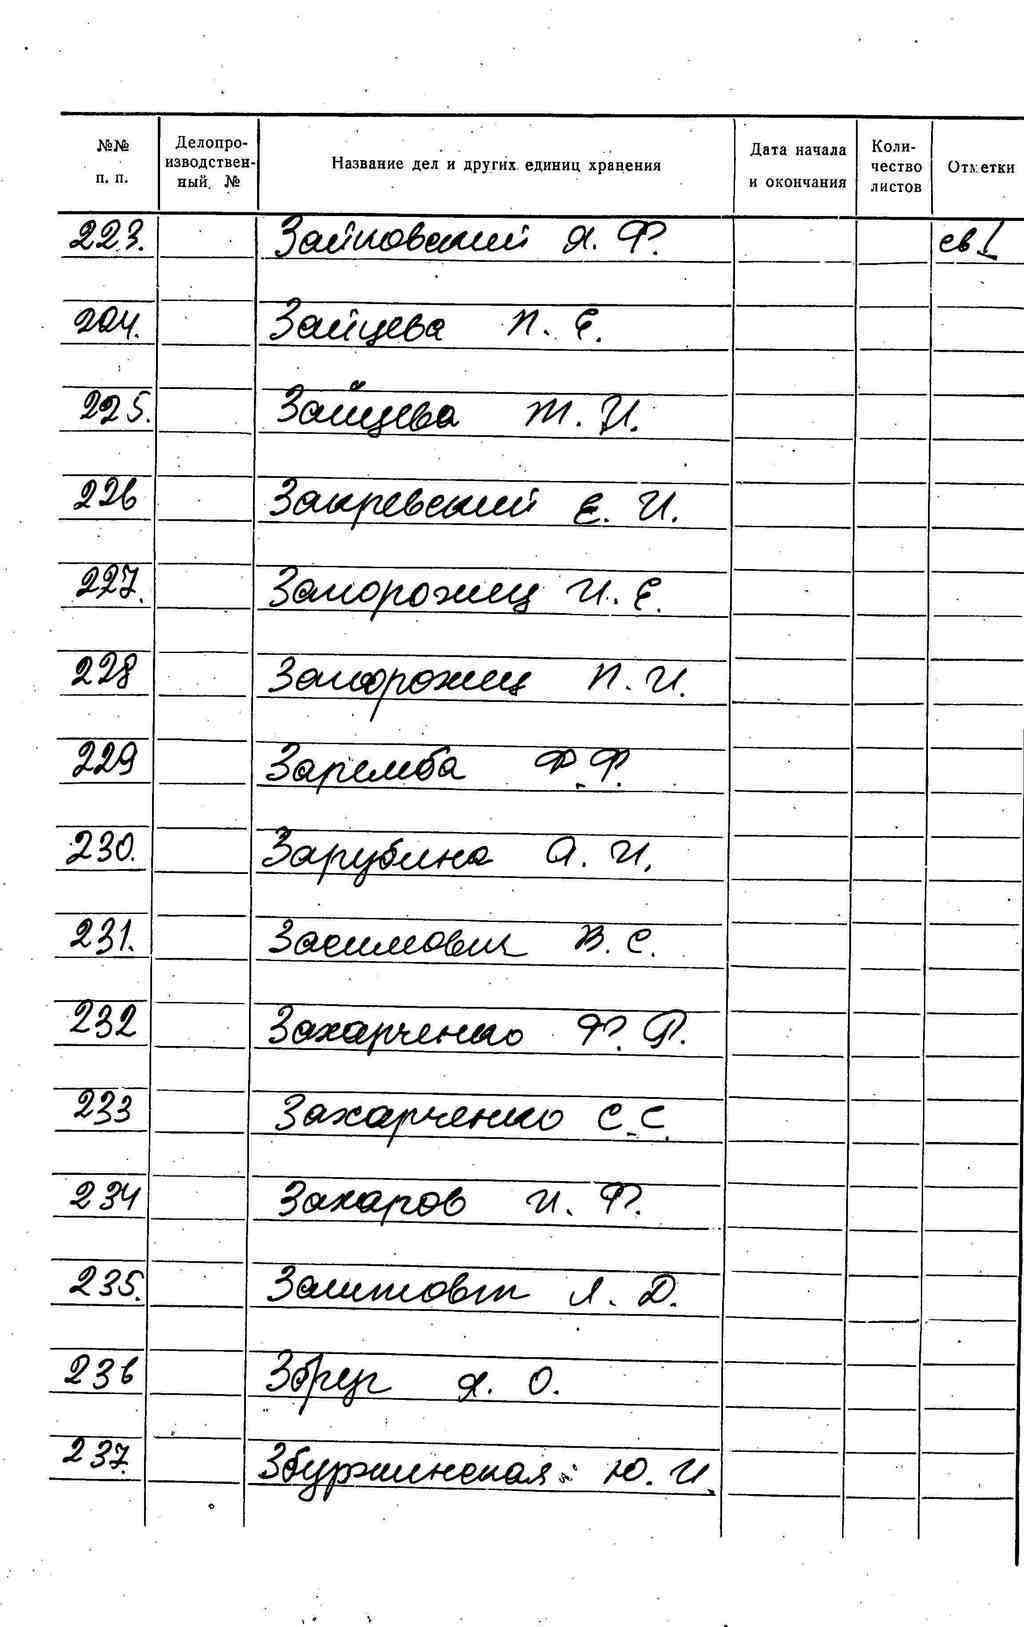 №№ п. п. Делопроизводствен-ный № Название дел и других единиц хранения Дата начала и окончания Коли-чество листов Отметки
223. Зайковский Я. Ф. св. 1
224. Зайцева П. Е.
225. Зайцева М. И.
226 Закревский Е. И.
227. Запорожец И. Е.
228 Запорожец П. И.
229 Заремба Ф. Ф.
230. Зарубина А. И.
231. Засимович В. С.
232 Захарченко Ф. Ф.
233 Захарченко С. С.
234 Захаров И. Ф.
235. Заштовт Л. Д.
236 Збруг Я. О.
237. Збуржинская Ю. И.